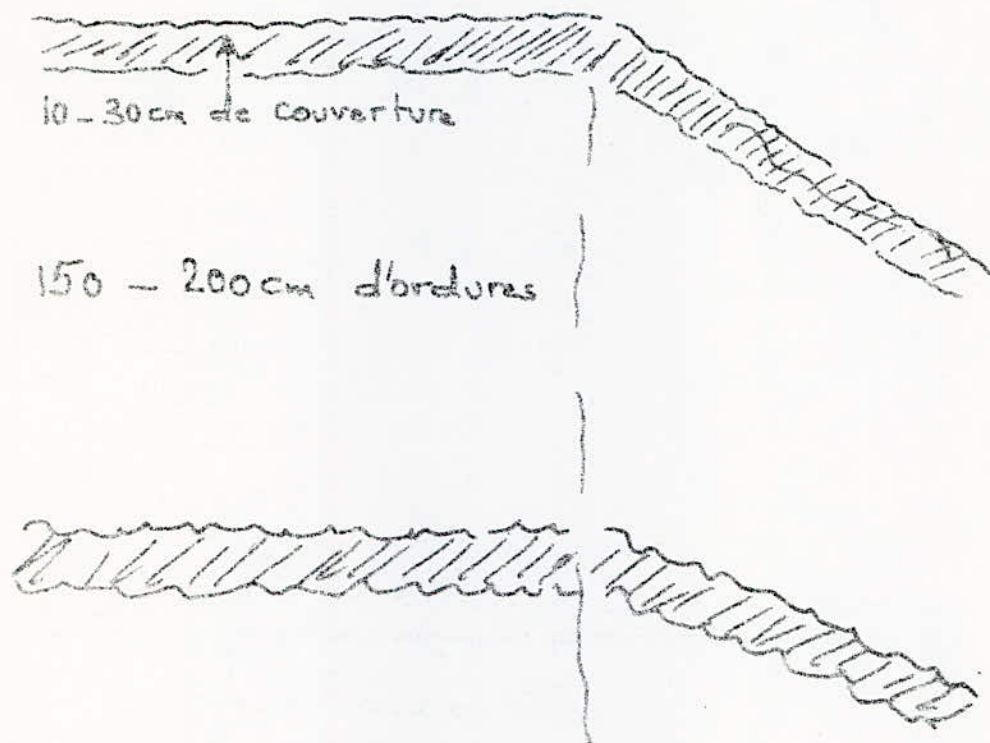 10-30cm de couverture
150 - 200cm d'ordures